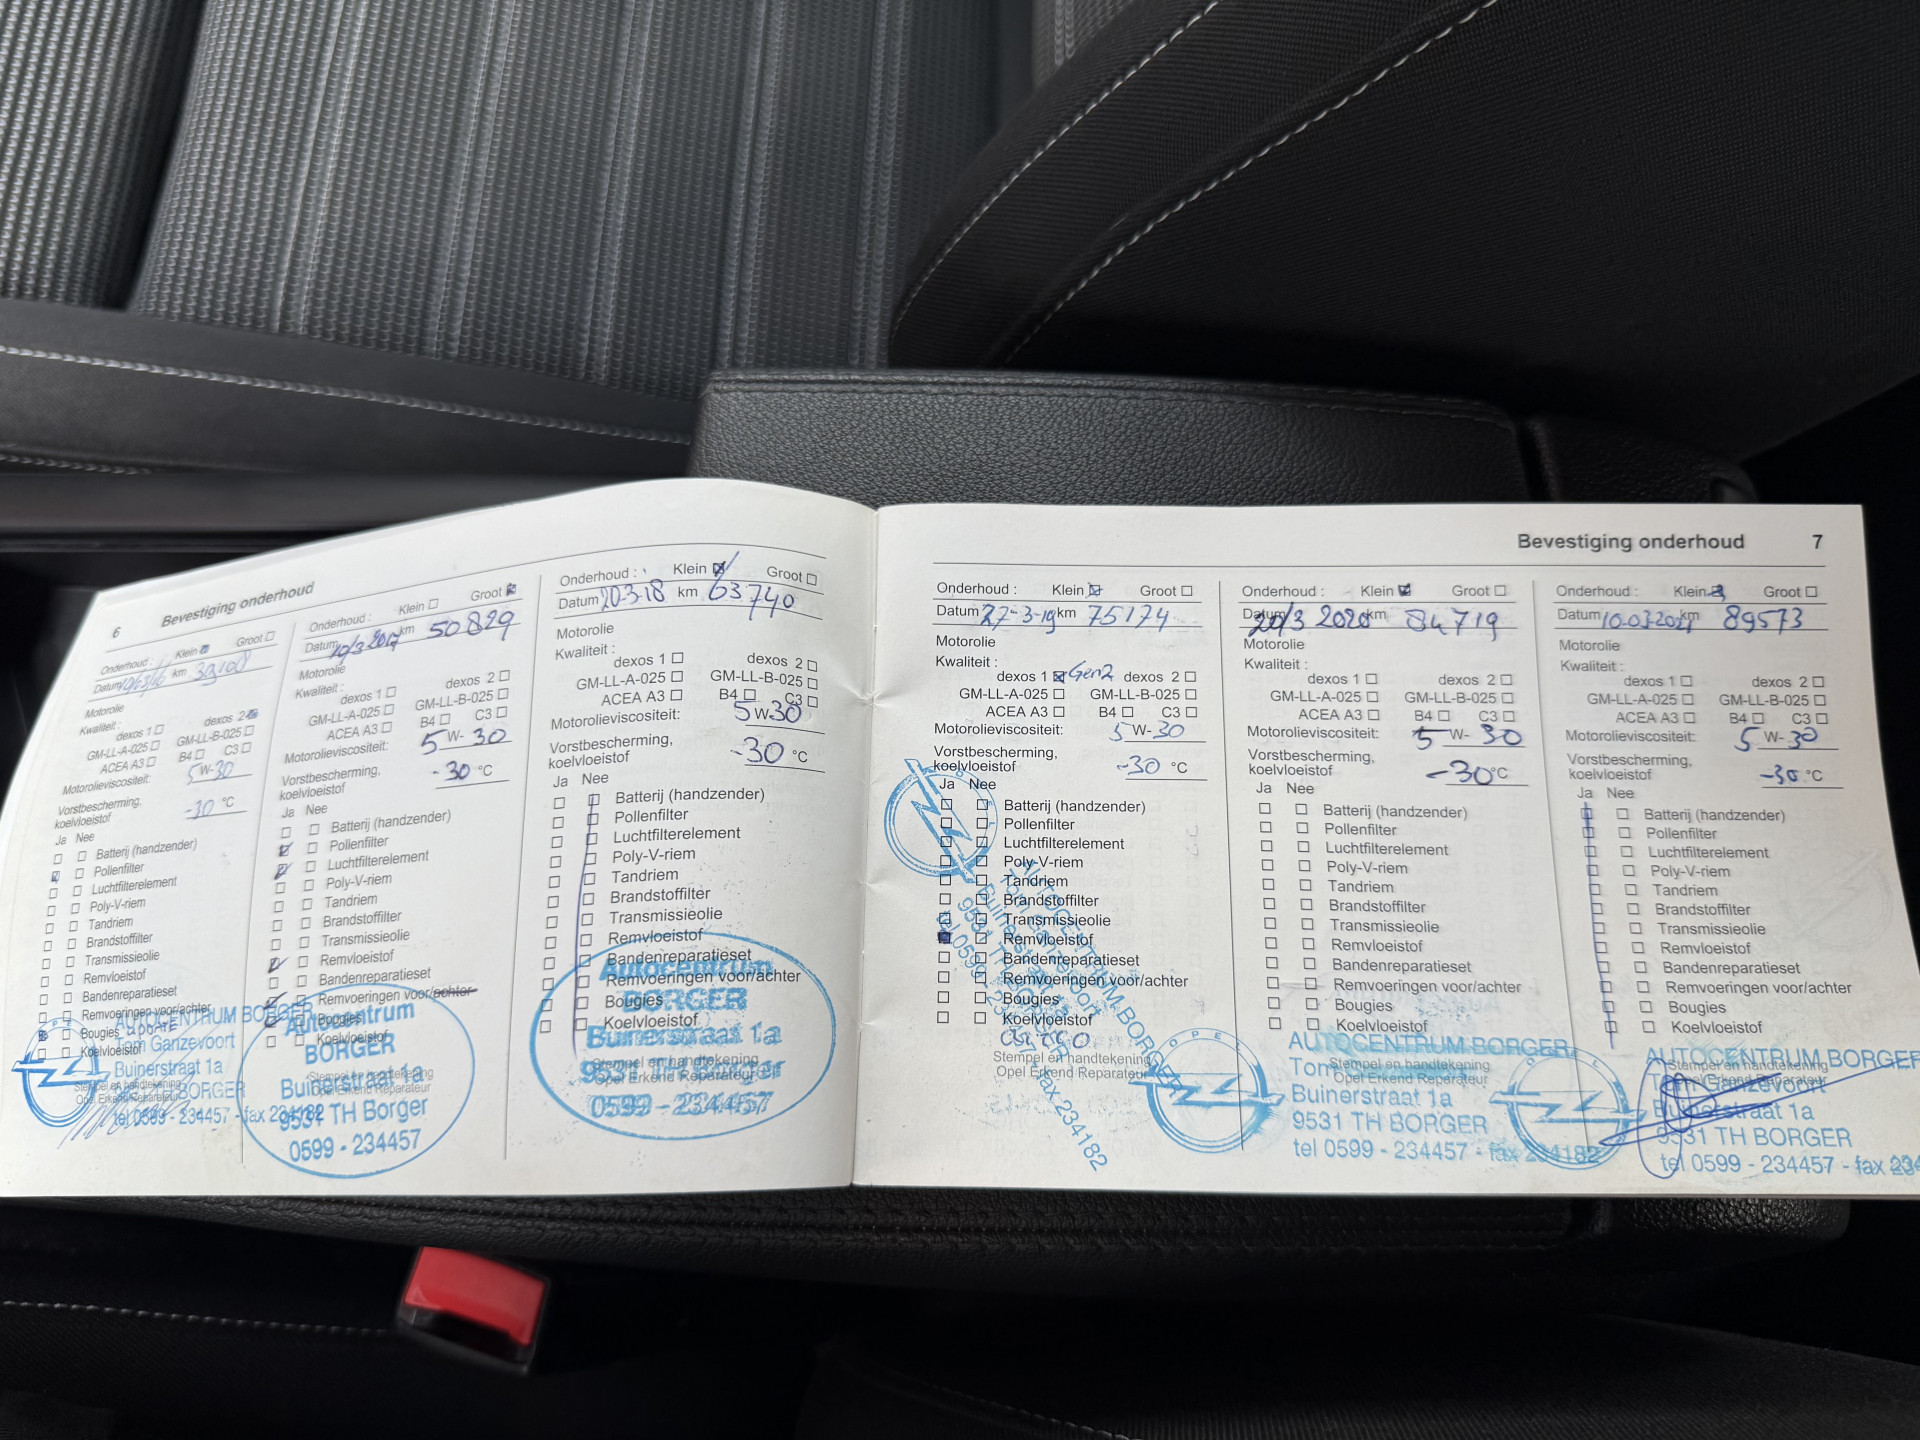 6 Bevestiging onderhoud
Onderhoud : Klein Groot
Datum km
Motorolie
Kwaliteit :
dexos 1 dexos 2
GM-LL-A-025 GM-LL-B-025
ACEA A3 B4 C3
Motorolieviscositeit: 5 W-30
Vorstbescherming,
koelvloeistof -30 °C
Ja Nee
Batterij (handzender)
Pollenfilter
Luchtfilterelement
Poly-V-riem
Tandriem
Brandstoffilter
Transmissieolie
Remvloeistof
Bandenreparatieset
Remvoeringen voor/achter
Bougies
Koelvloeistof
Stempel en handtekening
Opel Erkend Reparateur
AUTOCENTRUM BORGER
Tom Ganzevoort
Buinerstraat 1a
BORGER
tel 0599 - 234457 - fax 234182
Onderhoud : Klein Groot
Datum 10/3 2017 km 50829
Motorolie
Kwaliteit :
dexos 1 dexos 2
GM-LL-A-025 GM-LL-B-025
ACEA A3 B4 C3
Motorolieviscositeit: 5 W- 30
Vorstbescherming,
koelvloeistof - 30 °C
Ja Nee
Batterij (handzender)
Pollenfilter
Luchtfilterelement
Poly-V-riem
Tandriem
Brandstoffilter
Transmissieolie
Remvloeistof
Bandenreparatieset
Remvoeringen voor/achter
Bougies
Koelvloeistof
Autocentrum
BORGER
Buinerstraat 1a
9531 TH Borger
0599 - 234457
Onderhoud : Klein Groot
Datum 20-3-18 km 63740
Motorolie
Kwaliteit :
dexos 1 dexos 2
GM-LL-A-025 GM-LL-B-025
ACEA A3 B4 C3
Motorolieviscositeit: 5 W-30
Vorstbescherming,
koelvloeistof -30 °C
Ja Nee
Batterij (handzender)
Pollenfilter
Luchtfilterelement
Poly-V-riem
Tandriem
Brandstoffilter
Transmissieolie
Remvloeistof
Bandenreparatieset
Remvoeringen voor/achter
Bougies
Koelvloeistof
Stempel en handtekening
Opel Erkend Reparateur
Autocentrum
BORGER
Buinerstraat 1a
9531 TH Borger
0599 - 234457
Bevestiging onderhoud 7
Onderhoud : Klein Groot
Datum 27-3-19 km 75174
Motorolie
Kwaliteit :
dexos 1 Gen2 dexos 2
GM-LL-A-025 GM-LL-B-025
ACEA A3 B4 C3
Motorolieviscositeit: 5 W-30
Vorstbescherming,
koelvloeistof -30 °C
Ja Nee
Batterij (handzender)
Pollenfilter
Luchtfilterelement
Poly-V-riem
Tandriem
Brandstoffilter
Transmissieolie
Remvloeistof
Bandenreparatieset
Remvoeringen voor/achter
Bougies
Koelvloeistof
Stempel en handtekening
Opel Erkend Reparateur
OPEL
AUTOCENTRUM BORGER
fax 234182
Onderhoud : Klein Groot
Datum 3 2020 km 84719
Motorolie
Kwaliteit :
dexos 1 dexos 2
GM-LL-A-025 GM-LL-B-025
ACEA A3 B4 C3
Motorolieviscositeit: 5 W- 30
Vorstbescherming,
koelvloeistof -30 °C
Ja Nee
Batterij (handzender)
Pollenfilter
Luchtfilterelement
Poly-V-riem
Tandriem
Brandstoffilter
Transmissieolie
Remvloeistof
Bandenreparatieset
Remvoeringen voor/achter
Bougies
Koelvloeistof
Stempel en handtekening
Opel Erkend Reparateur
OPEL
AUTOCENTRUM BORGER
Tom
Buinerstraat 1a
9531 TH BORGER
tel 0599 - 234457 - fax 234182
Onderhoud : Klein Groot
Datum 10-03-2021 km 89573
Motorolie
Kwaliteit :
dexos 1 dexos 2
GM-LL-A-025 GM-LL-B-025
ACEA A3 B4 C3
Motorolieviscositeit: 5 W- 30
Vorstbescherming,
koelvloeistof -30 °C
Ja Nee
Batterij (handzender)
Pollenfilter
Luchtfilterelement
Poly-V-riem
Tandriem
Brandstoffilter
Transmissieolie
Remvloeistof
Bandenreparatieset
Remvoeringen voor/achter
Bougies
Koelvloeistof
Stempel en handtekening
Opel Erkend Reparateur
AUTOCENTRUM BORGER
Tom Ganzevoort
Buinerstraat 1a
9531 TH BORGER
tel 0599 - 234457 - fax